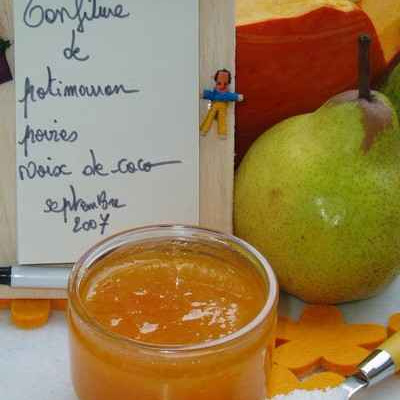 Confiture
de
potimarron
poires
Noix de coco
septembre
2007